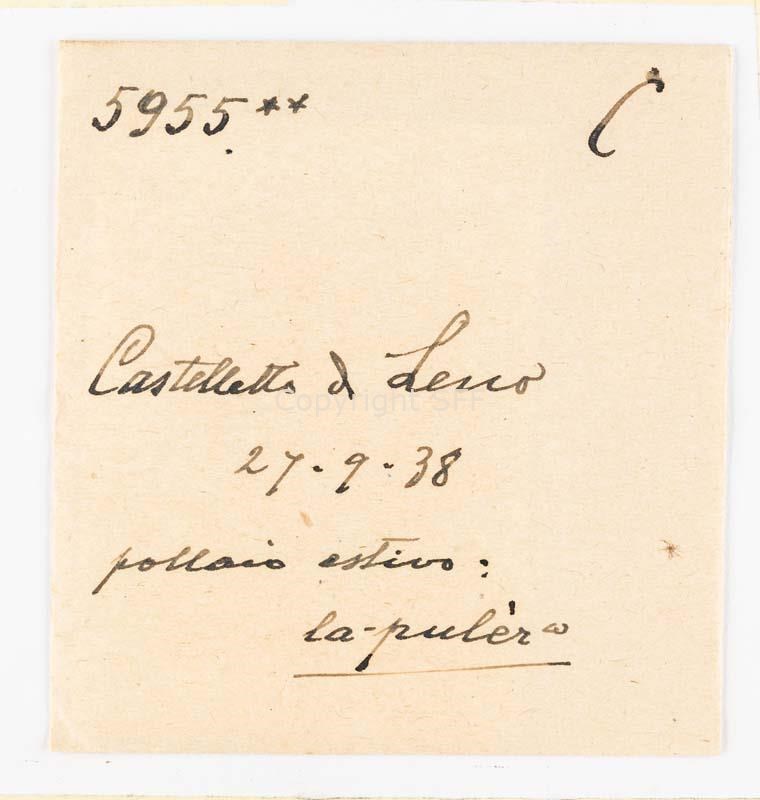 5955.** C
Castelletto di Leno
Copyright SFF
27-9-38
pollaio estivo:
la-pulèra